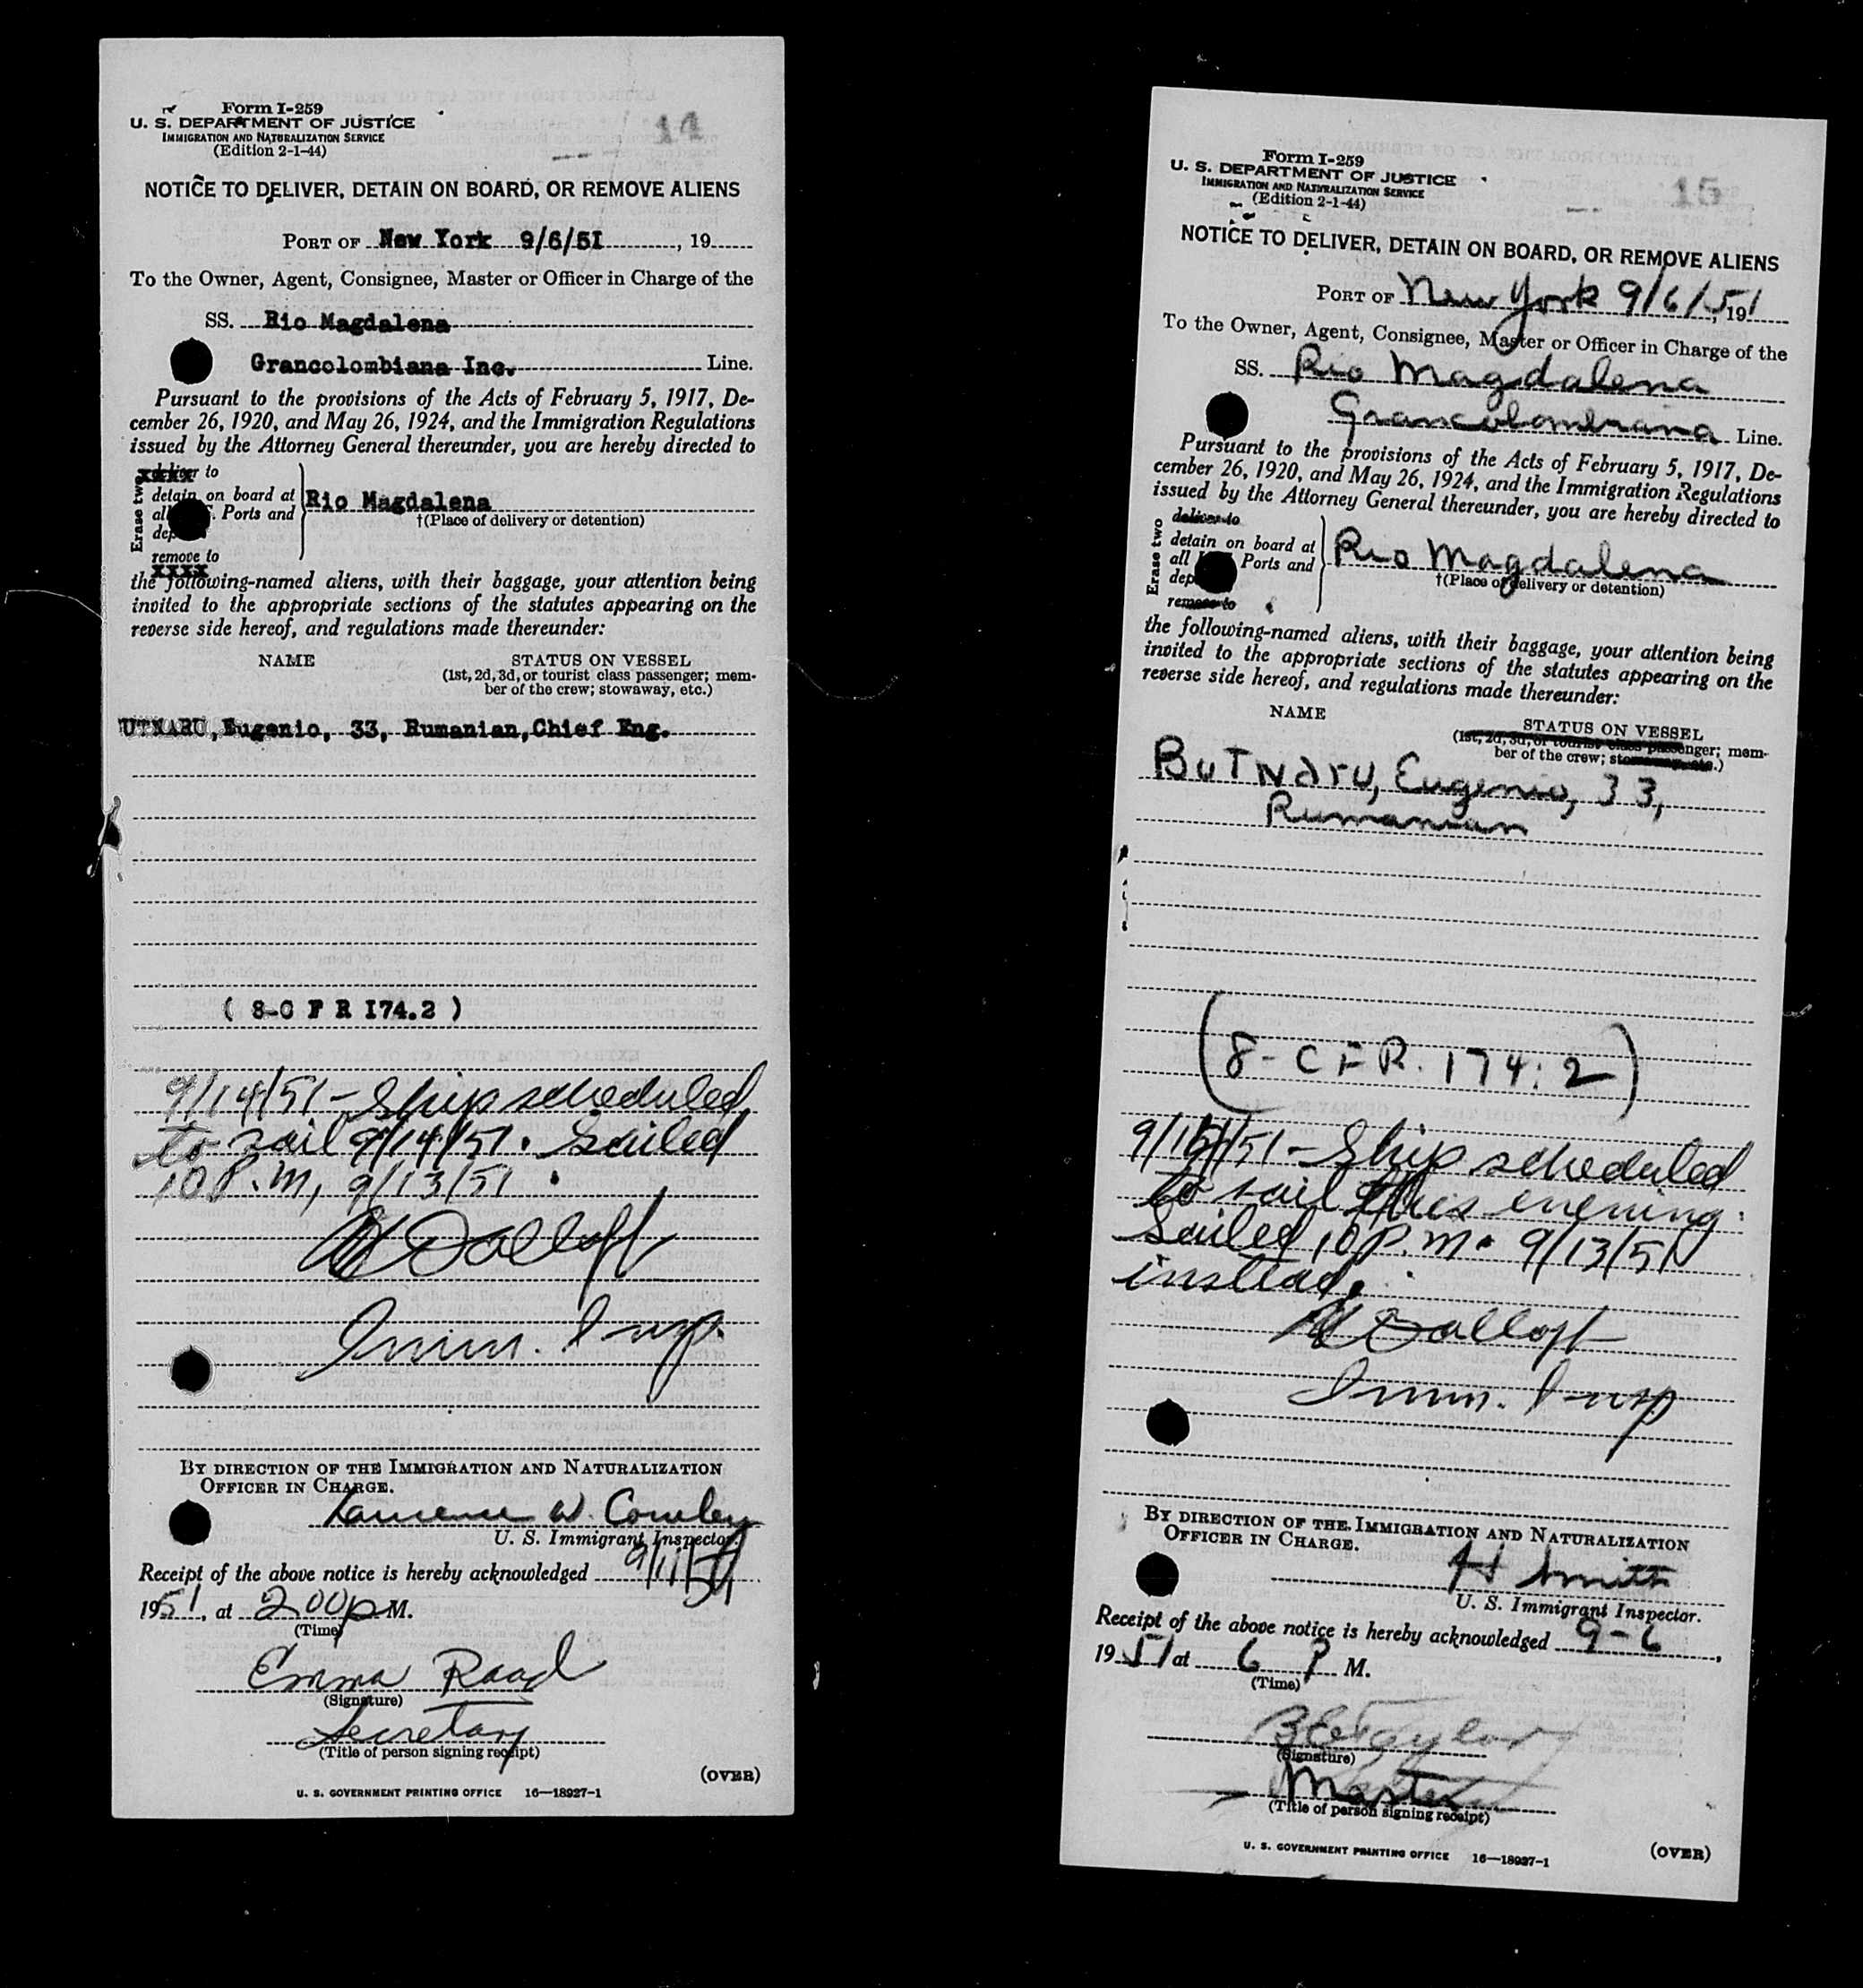 Form I-259
U. S. DEPARTMENT OF JUSTICE
IMMIGRATION AND NATURALIZATION SERVICE
(Edition 2-1-44)
14
NOTICE TO DELIVER, DETAIN ON BOARD, OR REMOVE ALIENS
PORT OF New York 9/6/51, 19
To the Owner, Agent, Consignee, Master or Officer in Charge of the
SS. Rio Magdalena
Grancolombiana Inc. Line.
Pursuant to the provisions of the Acts of February 5, 1917, De-
cember 26, 1920, and May 26, 1924, and the Immigration Regulations
issued by the Attorney General thereunder, you are hereby directed to
Erase two
deliver to
detain on board at
all Ports and
dep
remove to
xxxx
Rio Magdalena
†(Place of delivery or detention)
the following-named aliens, with their baggage, your attention being
invited to the appropriate sections of the statutes appearing on the
reverse side hereof, and regulations made thereunder:
NAME STATUS ON VESSEL
(1st, 2d, 3d, or tourist class passenger; mem-
ber of the crew; stowaway, etc.)
UTNARU, Eugenio, 33, Rumanian, Chief Eng.
( 8-C F R I74.2 )
9/14/51 - Ship scheduled
to sail 9/14/51. Sailed
10 P.M, 9/13/51.
Imm. Insp.
BY DIRECTION OF THE IMMIGRATION AND NATURALIZATION
OFFICER IN CHARGE.
Laurence W. Cowley
U. S. Immigrant Inspector.
Receipt of the above notice is hereby acknowledged 9/11/51
1951, at 2:00 p M.
(Time)
Emma Raad
(Signature)
Secretary
(Title of person signing receipt)
(OVER)
U. S. GOVERNMENT PRINTING OFFICE 16—18927-1
Form I-259
U. S. DEPARTMENT OF JUSTICE
IMMIGRATION AND NATURALIZATION SERVICE
(Edition 2-1-44)
15
NOTICE TO DELIVER, DETAIN ON BOARD, OR REMOVE ALIENS
PORT OF New York 9/6/51, 19
To the Owner, Agent, Consignee, Master or Officer in Charge of the
SS. Rio Magdalena
Grancolombiana Line.
Pursuant to the provisions of the Acts of February 5, 1917, De-
cember 26, 1920, and May 26, 1924, and the Immigration Regulations
issued by the Attorney General thereunder, you are hereby directed to
Erase two
deliver to
detain on board at
all Ports and
dep
remove to
Rio Magdalena
†(Place of delivery or detention)
the following-named aliens, with their baggage, your attention being
invited to the appropriate sections of the statutes appearing on the
reverse side hereof, and regulations made thereunder:
NAME STATUS ON VESSEL
(1st, 2d, 3d, or tourist class passenger; mem-
ber of the crew; stowaway, etc.)
Butnaru, Eugenio, 33,
Rumanian
(8-CFR. 174:2)
9/14/51 - Ship scheduled
to sail this evening.
Sailed 10 P.M. 9/13/51
instead.
Imm. Insp
BY DIRECTION OF THE IMMIGRATION AND NATURALIZATION
OFFICER IN CHARGE.
H Smith
U. S. Immigrant Inspector.
Receipt of the above notice is hereby acknowledged 9-6,
1951 at 6 P M.
(Time)
Taylor
(Signature)
Master
(Title of person signing receipt)
U. S. GOVERNMENT PRINTING OFFICE 16—18927-1
(OVER)